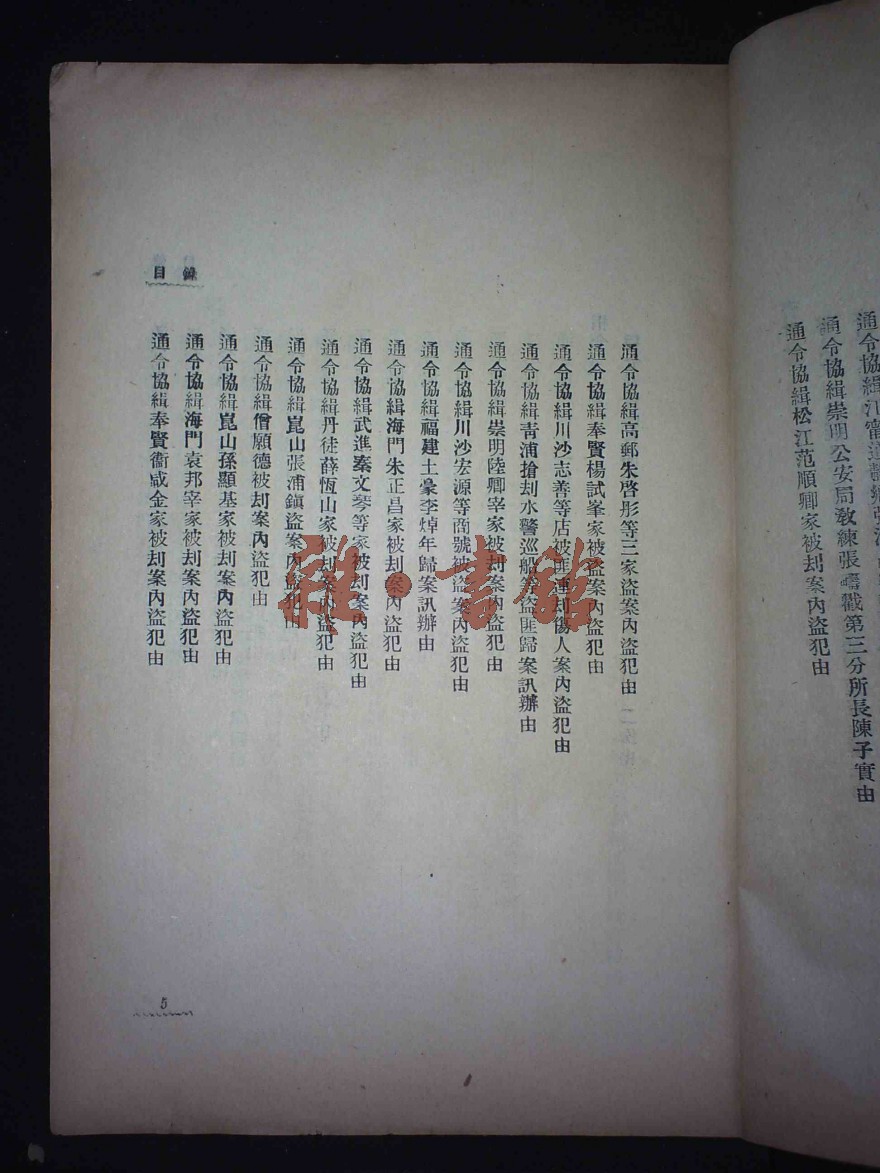 通令協緝崇明公安局教練張疇戳第三分所長陳子實由
通令協緝松江范順卿家被刦案內盜犯由
目錄
通令協緝高郵朱啓彤等三家盜案內盜犯由
通令協緝奉賢楊試峯家被盜案內盜犯由
通令協緝川沙志善等店被匪連刦傷人案內盜犯由
通令協緝青浦搶刦水警巡船等盜匪歸案訊辦由
通令協緝崇明陸卿宰家被刦案內盜犯由
通令協緝川沙宏源等商號被盜案內盜犯由
通令協緝福建土豪李焯年歸案訊辦由
通令協緝海門朱正昌家被刦案內盜犯由
通令協緝武進秦文琴等家被刦案內盜犯由
通令協緝丹徒薛恆山家被刦案內盜犯由
通令協緝崑山張浦鎮盜案內盜犯由
通令協緝僧願德被刦案內盜犯由
通令協緝崑山孫顯基家被刦案內盜犯由
通令協緝海門袁邦宰家被刦案內盜犯由
通令協緝奉賢衞咸金家被刦案內盜犯由
5
雅·書館